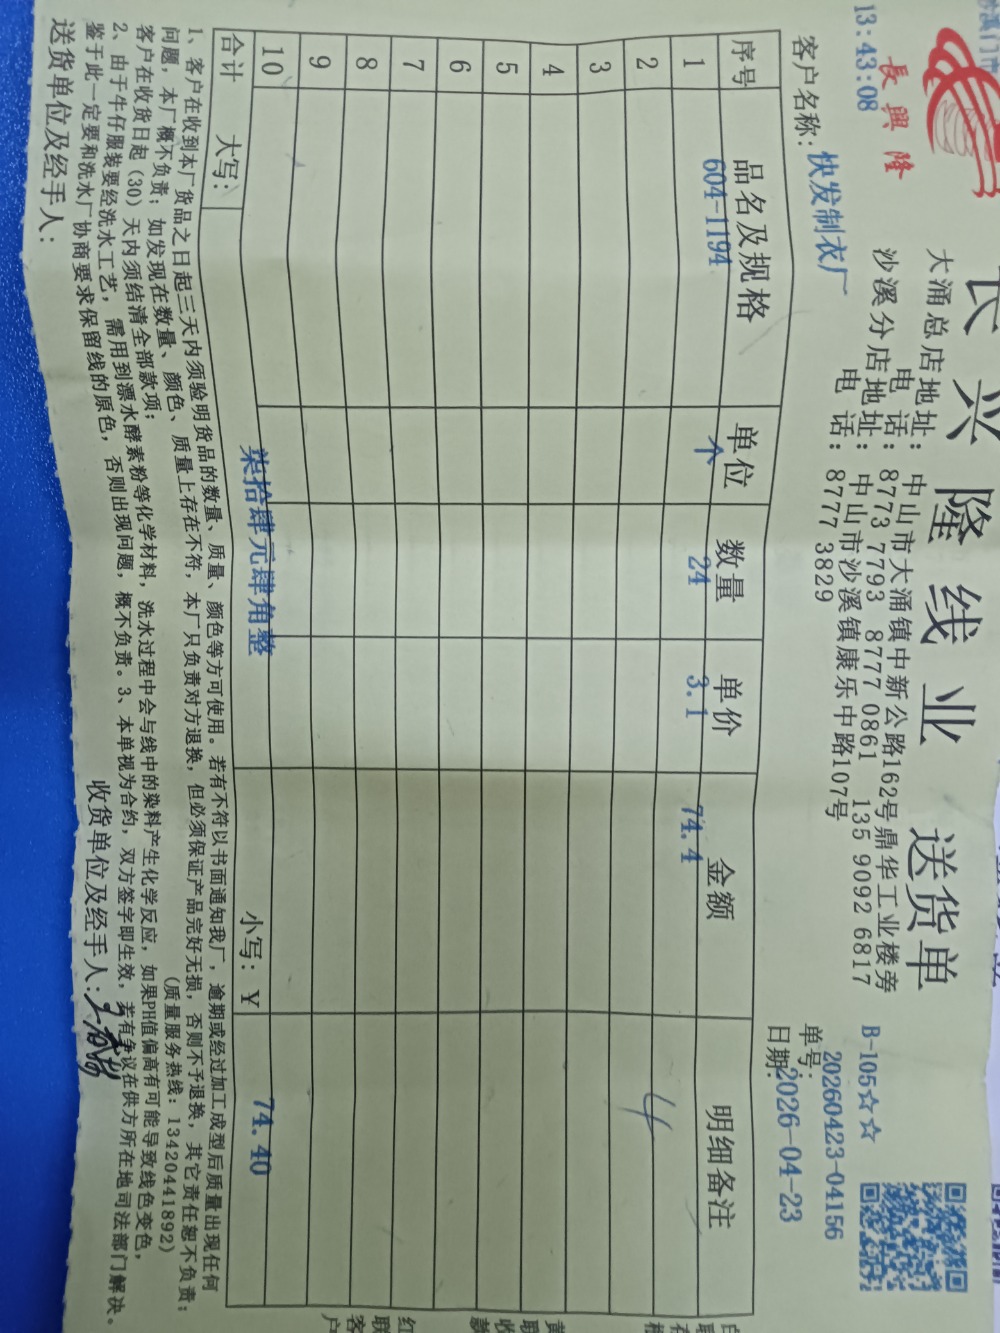 长兴隆线业 送货单
長興隆
13:43:08
大涌总店地址：中山市大涌镇中新公路162号鼎华工业楼旁
电 话：8773 7793 8777 0861 135 9092 6817
沙溪分店地址：中山市沙溪镇康乐中路107号
电 话：8777 3829
B-105☆☆
单号：20260423-04156
客户名称：快发制衣厂
日期：2026-04-23
序号 品名及规格 单位 数量 单价 金额 明细备注
1 604-1194 个 24 3.1 74.4
2
3
4
5
6
7
8
9
10
合计 大写：柒拾肆元肆角整 小写：￥ 74.40
1、客户在收到本厂货品之日起三天内须验明货品的数量、质量、颜色等方可使用。若有不符以书面通知我厂，逾期或经过加工成型后质量出现任何
问题，本厂概不负责；如发现在数量、颜色、质量上存在不符，本厂只负责对方退换，但必须保证产品完好无损，否则不予退换，其它责任恕不负责；
客户在收货日起（30）天内须结清全部款项； （质量服务热线：13420441892）
2、由于牛仔服装要经洗水工艺，需用到漂水酵素粉等化学材料，洗水过程中会与线中的染料产生化学反应，如果PH值偏高有可能导致线色变色，
鉴于此一定要和洗水厂协商要求保留线的原色，否则出现问题，概不负责。3、本单视为合约，双方签字即生效，若有争议在供方所在地司法部门解决。
送货单位及经手人： 收货单位及经手人：